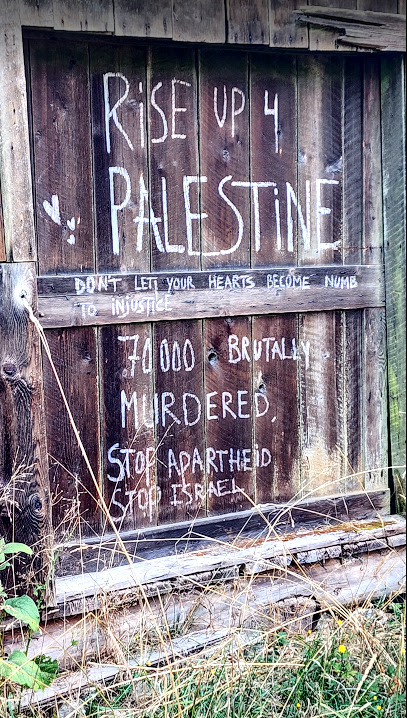 RiSE UP 4
PALESTiNE
DON'T LET YOUR HEARTS BECOME NUMB
TO INJUSTICE
70 000 BRUTALLY
MURDERED,
STOP APARTHEID
STOP ISRAEL